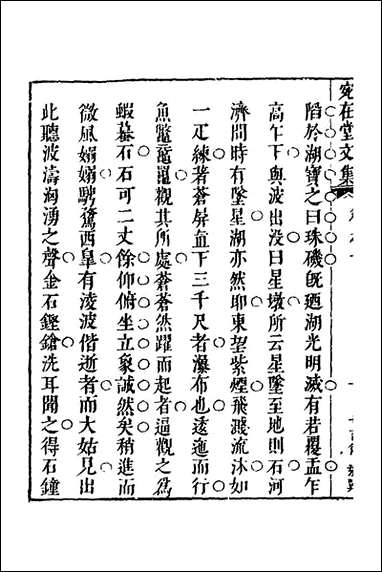 宛在堂文集
陷於湖寶之曰珠磯旣廼湖光明滅有若覆盂乍
高乍下與波出没曰星墩所云星墜至地則石河
濟間時有墜星湖亦然耶東望紫煙飛濺流沐如
一疋練著蒼屏直下三千尺者瀑布也逶迤而行
魚鼈黿鼉觀其所處蒼蒼然躍而起者逼觀之為
蝦蟇石石可二丈餘仰俯坐立象誠然矣稍進而
微風嫋嫋騁驁西皐有淩波偕逝者而大姑見出
此聽波濤洶湧之聲金石鏗鎗洗耳聞之得石鐘